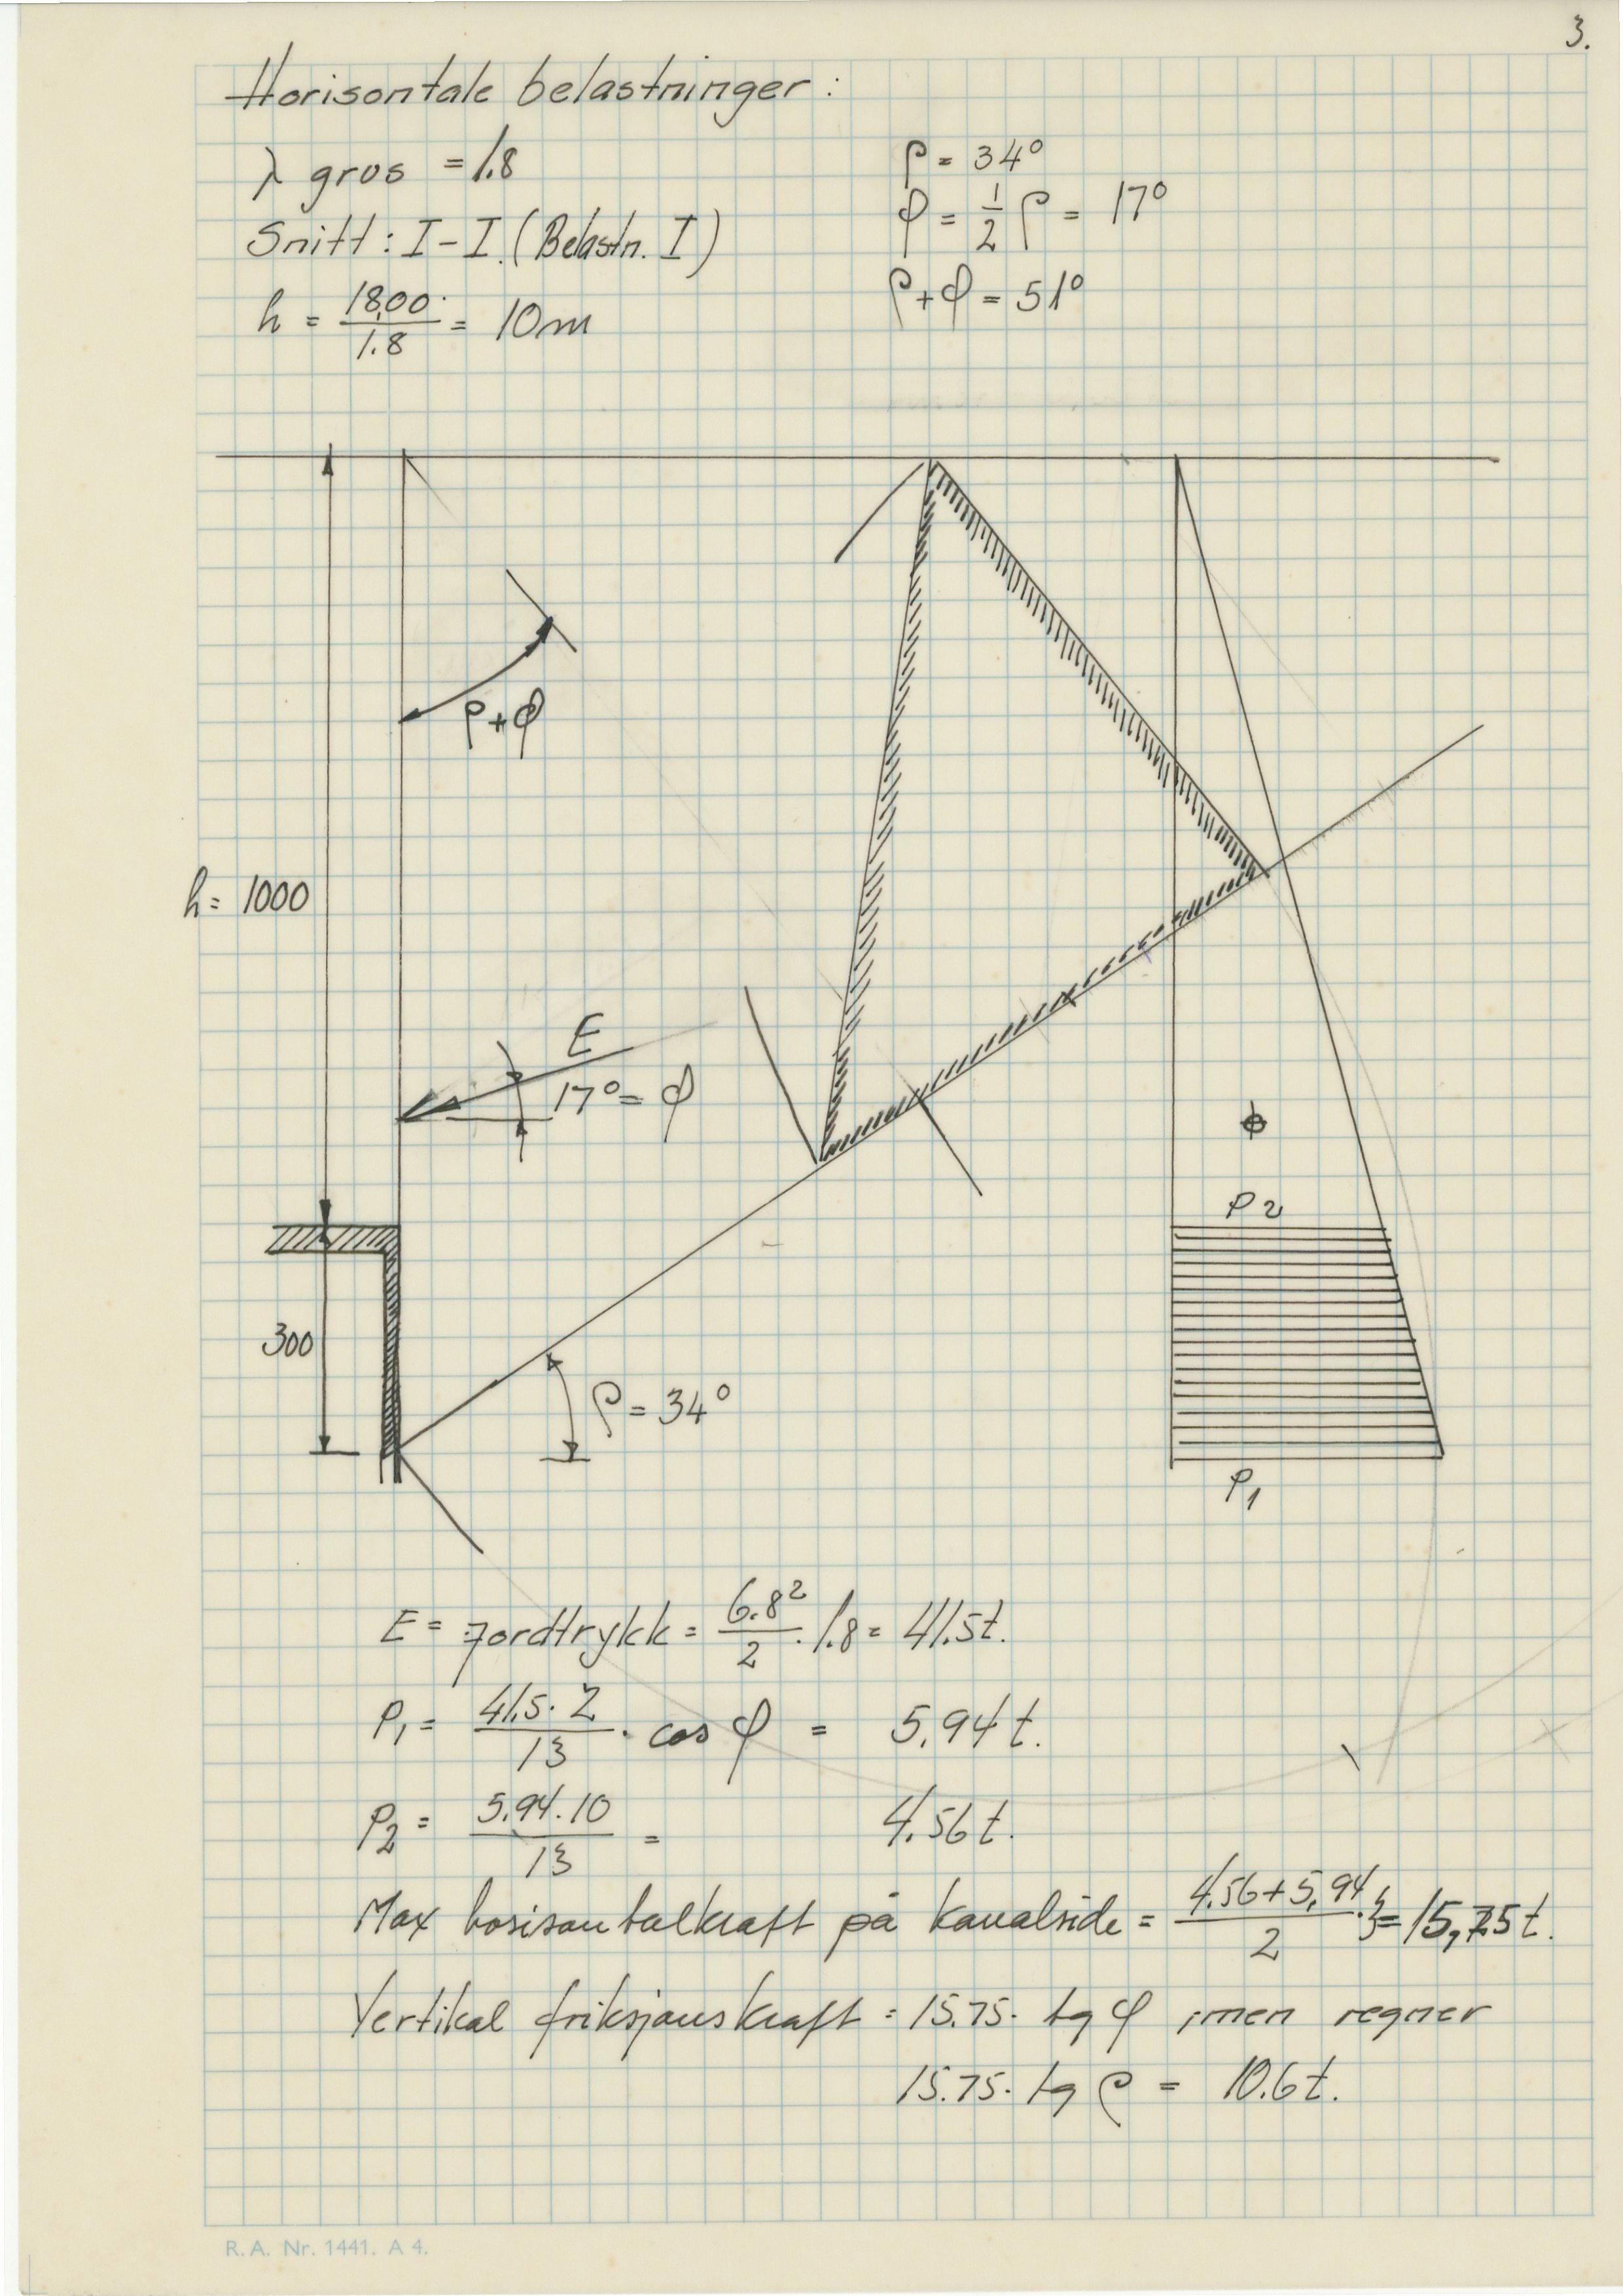 3.
Horisontale belastninger:
λ grus = 1.8
ρ = 34°
Snitt: I-I. (Belastn. I)
φ = 1/2 ρ = 17°
h = 18,00/1.8 = 10m
ρ+φ = 51°
ρ+φ
h = 1000
E
17° = φ
φ
P2
300
ρ = 34°
P1
E = jordtrykk = 6.8²/2 · 1.8 = 41.5t.
P1 = 41.5 · 2/13 · cos φ = 5.94t.
P2 = 5.94 · 10/13 = 4.56t.
Max horisontalkraft på kanalside = 4.56+5,94/2 · 3 = 15,75t.
Vertikal friksjonskraft = 15.75 · tg φ ; men regner
15.75 · tg ρ = 10.6t.
R.A. Nr. 1441. A 4.